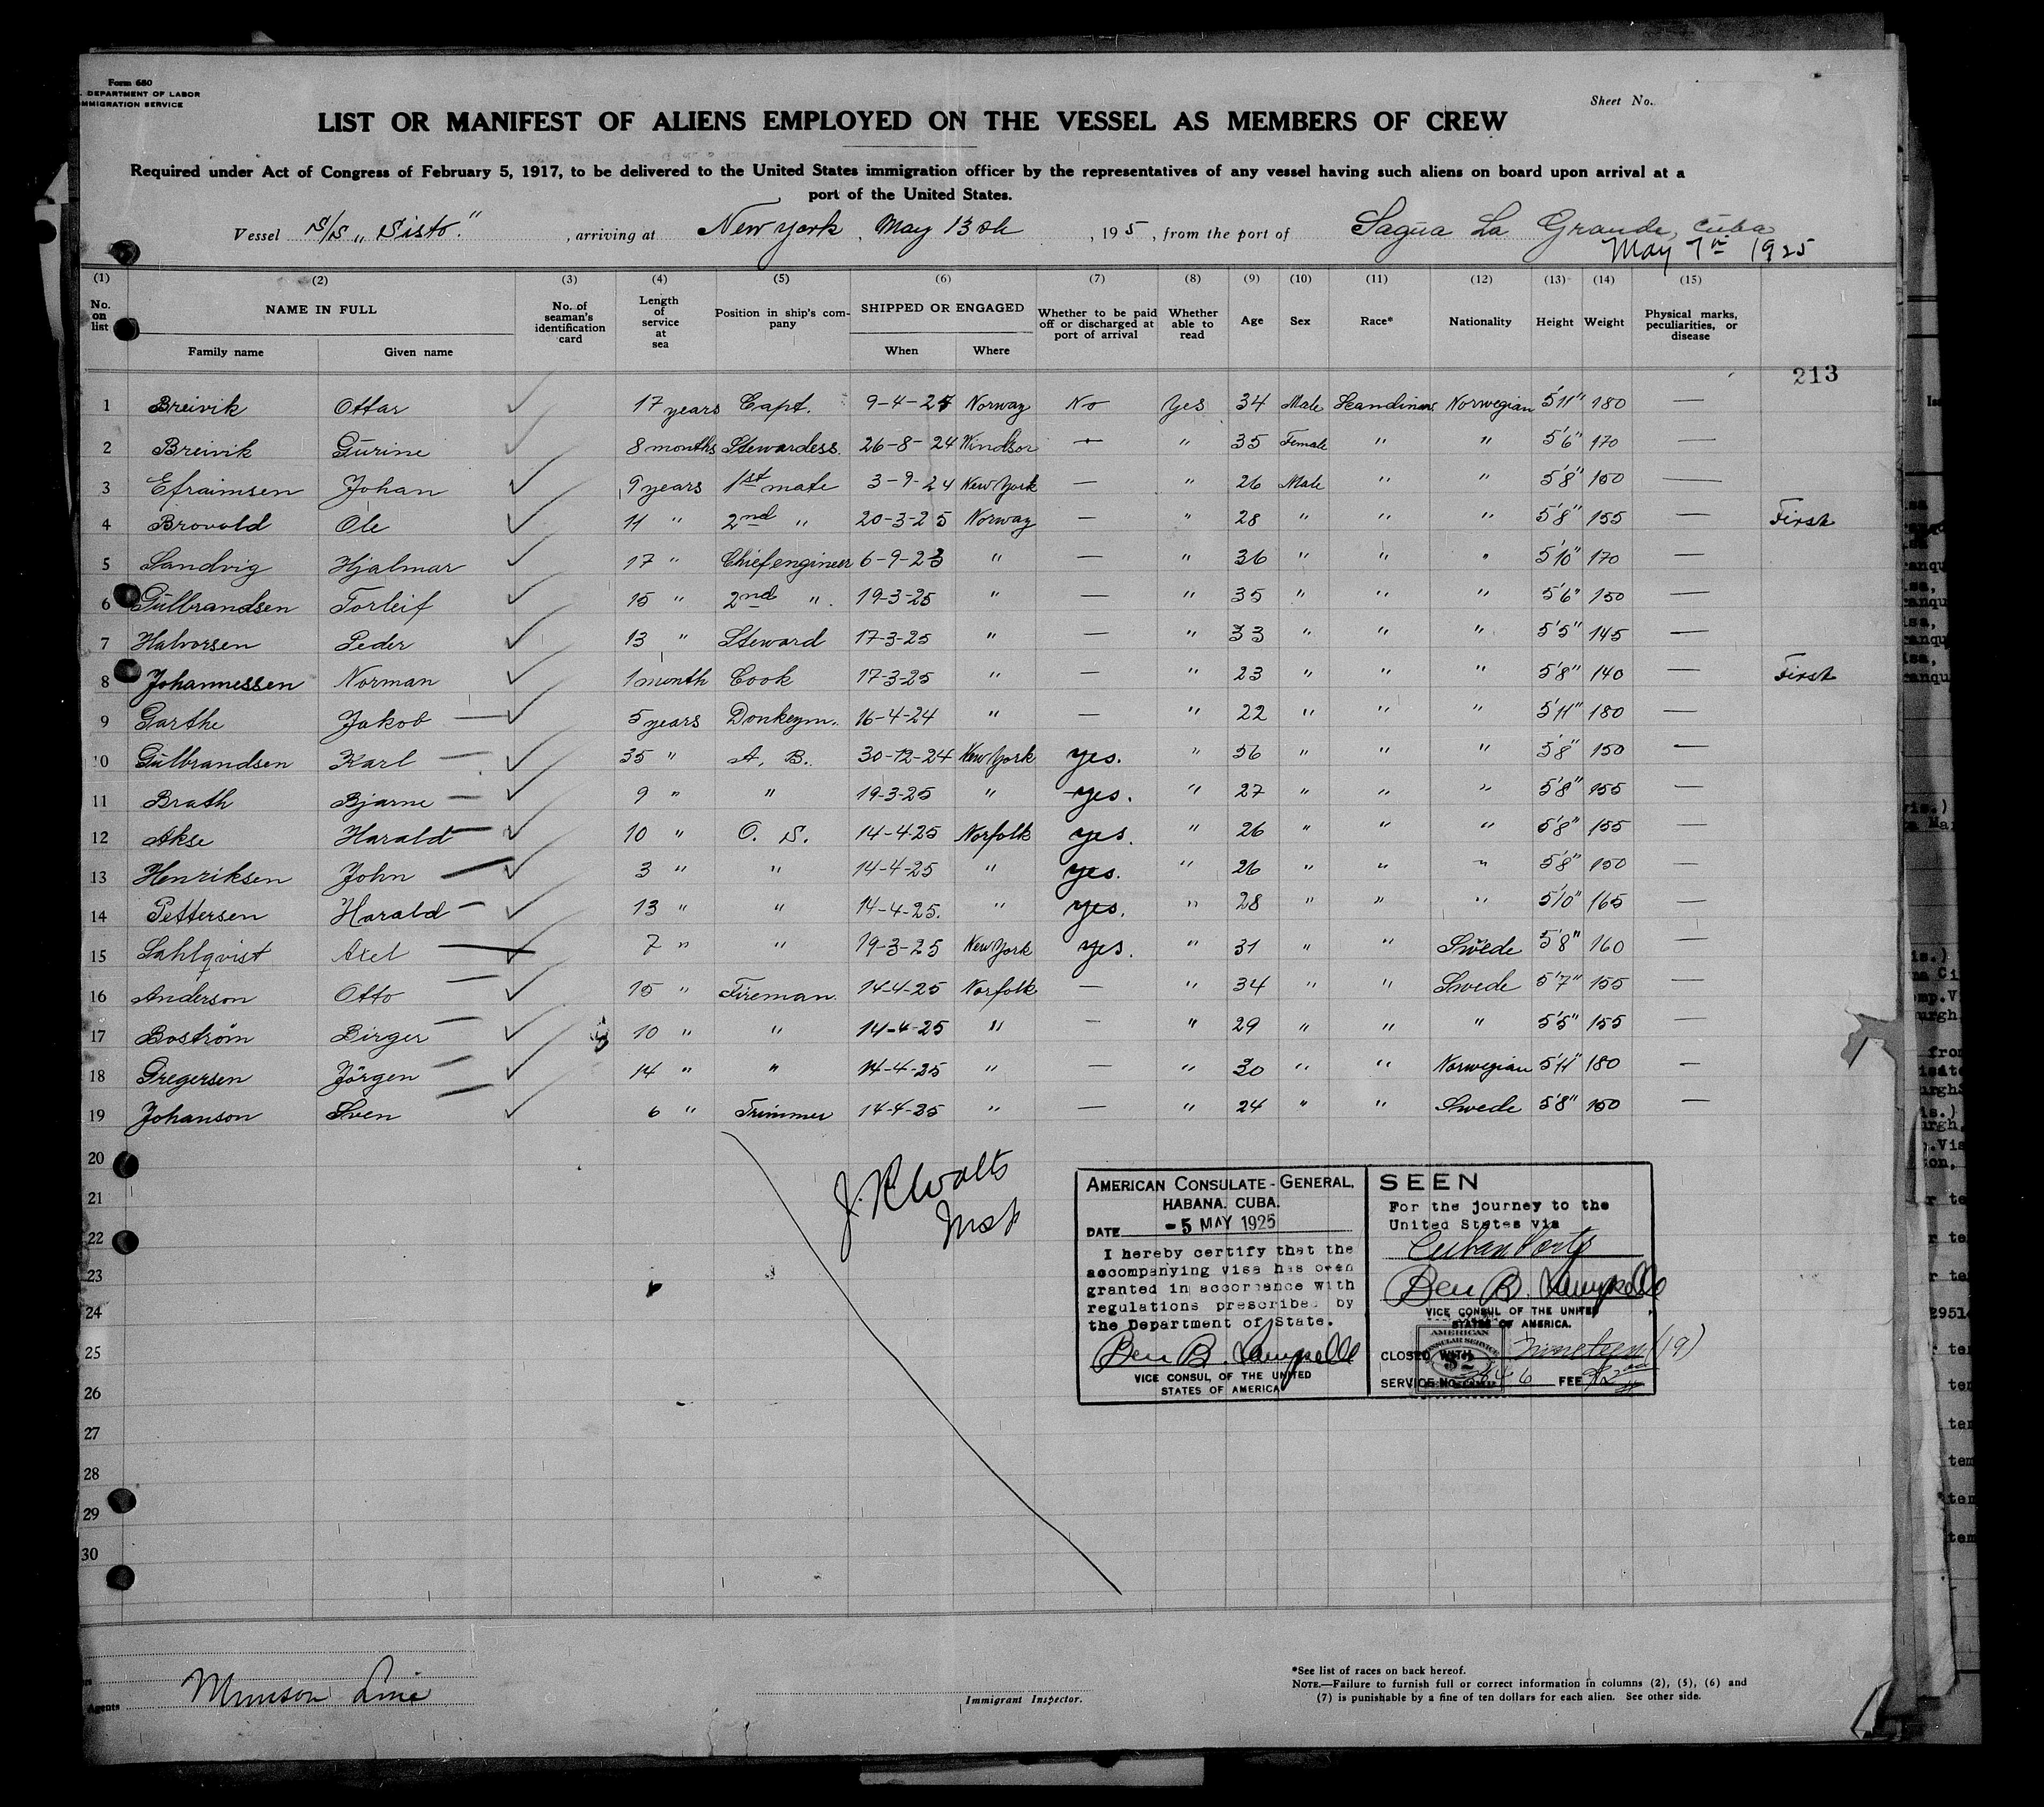 Form 680
DEPARTMENT OF LABOR
IMMIGRATION SERVICE
Sheet No.
LIST OR MANIFEST OF ALIENS EMPLOYED ON THE VESSEL AS MEMBERS OF CREW
Required under Act of Congress of February 5, 1917, to be delivered to the United States immigration officer by the representatives of any vessel having such aliens on board upon arrival at a
port of the United States.
Vessel S/S „Sisto", arriving at New York, May 13th, 195, from the port of Sagua La Grande, Cuba
May 7th 1925
(1) (2) (3) (4) (5) (6) (7) (8) (9) (10) (11) (12) (13) (14) (15)
No. on list NAME IN FULL Family name Given name No. of seaman's identification card Length of service at sea Position in ship's company SHIPPED OR ENGAGED When Where Whether to be paid off or discharged at port of arrival Whether able to read Age Sex Race* Nationality Height Weight Physical marks, peculiarities, or disease
213
1 Breivik Ottar 17 years Capt. 9-4-25 Norway No Yes 34 Male Scandinav. Norwegian 5'11" 180 —
2 Breivik Gurine 8 months Stewardess. 26-8-24 Windsor — " 35 Female " " 5'6" 170 —
3 Efraimsen Johan 9 years 1st mate 3-9-24 New York — " 26 Male " " 5'8" 150 —
4 Brovold Ole 11 " 2nd " 20-3-25 Norway — " 28 " " " 5'8" 155 — First
5 Sandvig Hjalmar 17 " Chief engineer 6-9-23 " — " 36 " " " 5'10" 170 —
6 Gulbrandsen Torleif 15 " 2nd ". 19-3-25 " — " 35 " " " 5'6" 150 —
7 Halvorsen Peder 13 " Steward 17-3-25 " — " 33 " " " 5'5" 145 —
8 Johannessen Norman 1 month Cook 17-3-25 " — " 23 " " " 5'8" 140 — First
9 Garthe Jakob 5 years Donkeym. 16-4-24 " — " 22 " " " 5'11" 180 —
10 Gulbrandsen Karl 35 " A. B. 30-12-24 New York yes. " 56 " " " 5'8" 150 —
11 Brath Bjarne 9 " " 19-3-25 " yes. " 27 " " " 5'8" 155 —
12 Akse Harald 10 " O. S. 14-4-25 Norfolk yes. " 26 " " " 5'8" 155 —
13 Henriksen John 3 " " 14-4-25 " yes. " 26 " " " 5'8" 150 —
14 Pettersen Harald 13 " " 14-4-25. " yes. " 28 " " " 5'10" 165 —
15 Sahlqvist Axel 7 " " 19-3-25 New York yes. " 31 " " Swede 5'8" 160 —
16 Anderson Otto 15 " Fireman. 14-4-25 Norfolk — " 34 " " Swede 5'7" 155 —
17 Boström Birger 10 " " 14-4-25 " — " 29 " " " 5'5" 155 —
18 Gregersen Jörgen 14 " " 14-4-25 " — " 30 " " Norwegian 5'11" 180 —
19 Johanson Sven 6 " Trimmer 14-4-25 " — " 24 " " Swede 5'8" 150 —
20
21
22
23
24
25
26
27
28
29
30
AMERICAN CONSULATE-GENERAL,
HABANA. CUBA.
DATE -5 MAY 1925
I hereby certify that the
accompanying visa has been
granted in accordance with
regulations prescribed by
the Department of State.
VICE CONSUL OF THE UNITED
STATES OF AMERICA
SEEN
For the journey to the
United States via
Cuban Ports
VICE CONSUL OF THE UNITED
STATES OF AMERICA.
CLOSED WITH Nineteen (19)
SERVICE NO. FEE
Agents Munson Line
Immigrant Inspector.
*See list of races on back hereof.
NOTE.—Failure to furnish full or correct information in columns (2), (5), (6) and
(7) is punishable by a fine of ten dollars for each alien. See other side.